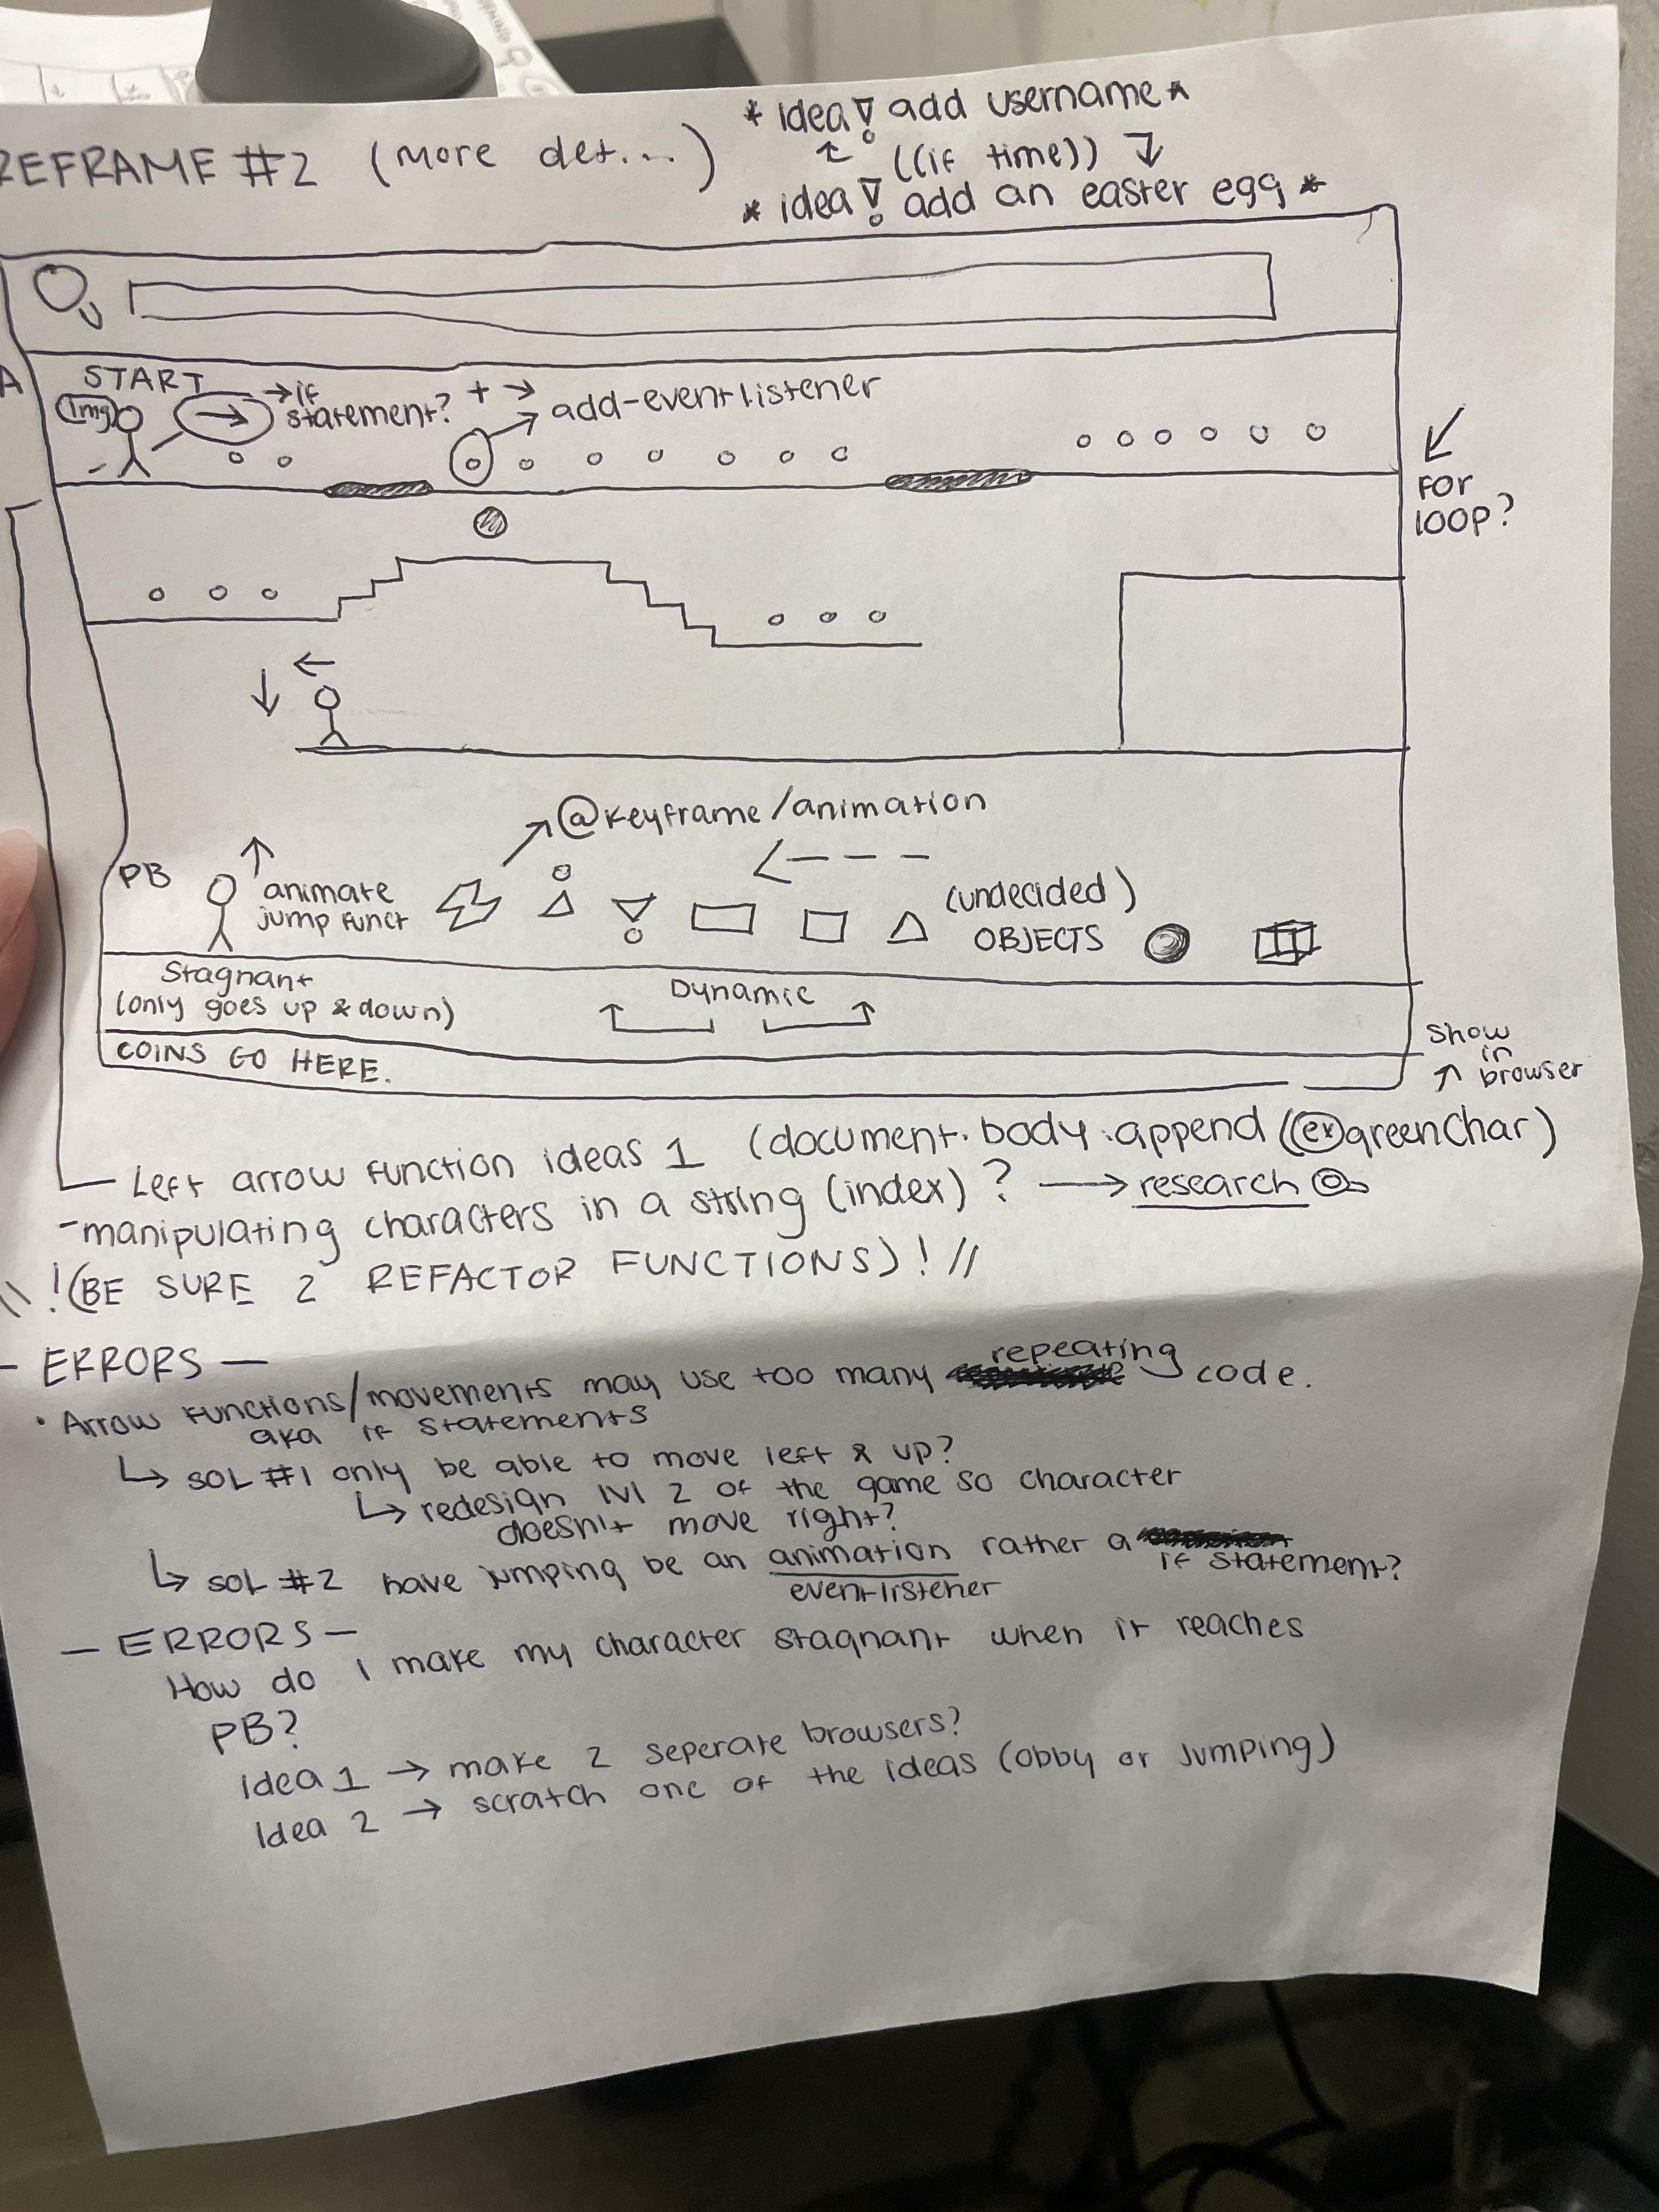 REFRAME #2 (more det...)
* idea! add username *
((if time))
* idea! add an easter egg *
A
START
Img
→ if
statement? + →
add-eventlistener
FOR
LOOP?
@keyframe/animation
PB
animate
jump funct
(undecided)
OBJECTS
Stagnant
(only goes up & down)
Dynamic
COINS GO HERE.
Show
in
browser
Left arrow function ideas 1 (document.body.append (ex) greenChar)
-manipulating characters in a string (index)? → research
\\ !(BE SURE 2 REFACTOR FUNCTIONS)! //
- ERRORS -
• Arrow functions/movements may use too many repeating code.
aka if statements
↳ SOL #1 only be able to move left & up?
↳ redesign lvl 2 of the game so character
doesn't move right?
↳ SOL #2 have jumping be an animation rather a if statement?
eventlistener
- ERRORS -
How do I make my character stagnant when it reaches
PB?
idea 1 → make 2 seperate browsers?
Idea 2 → scratch one of the ideas (obby or jumping)